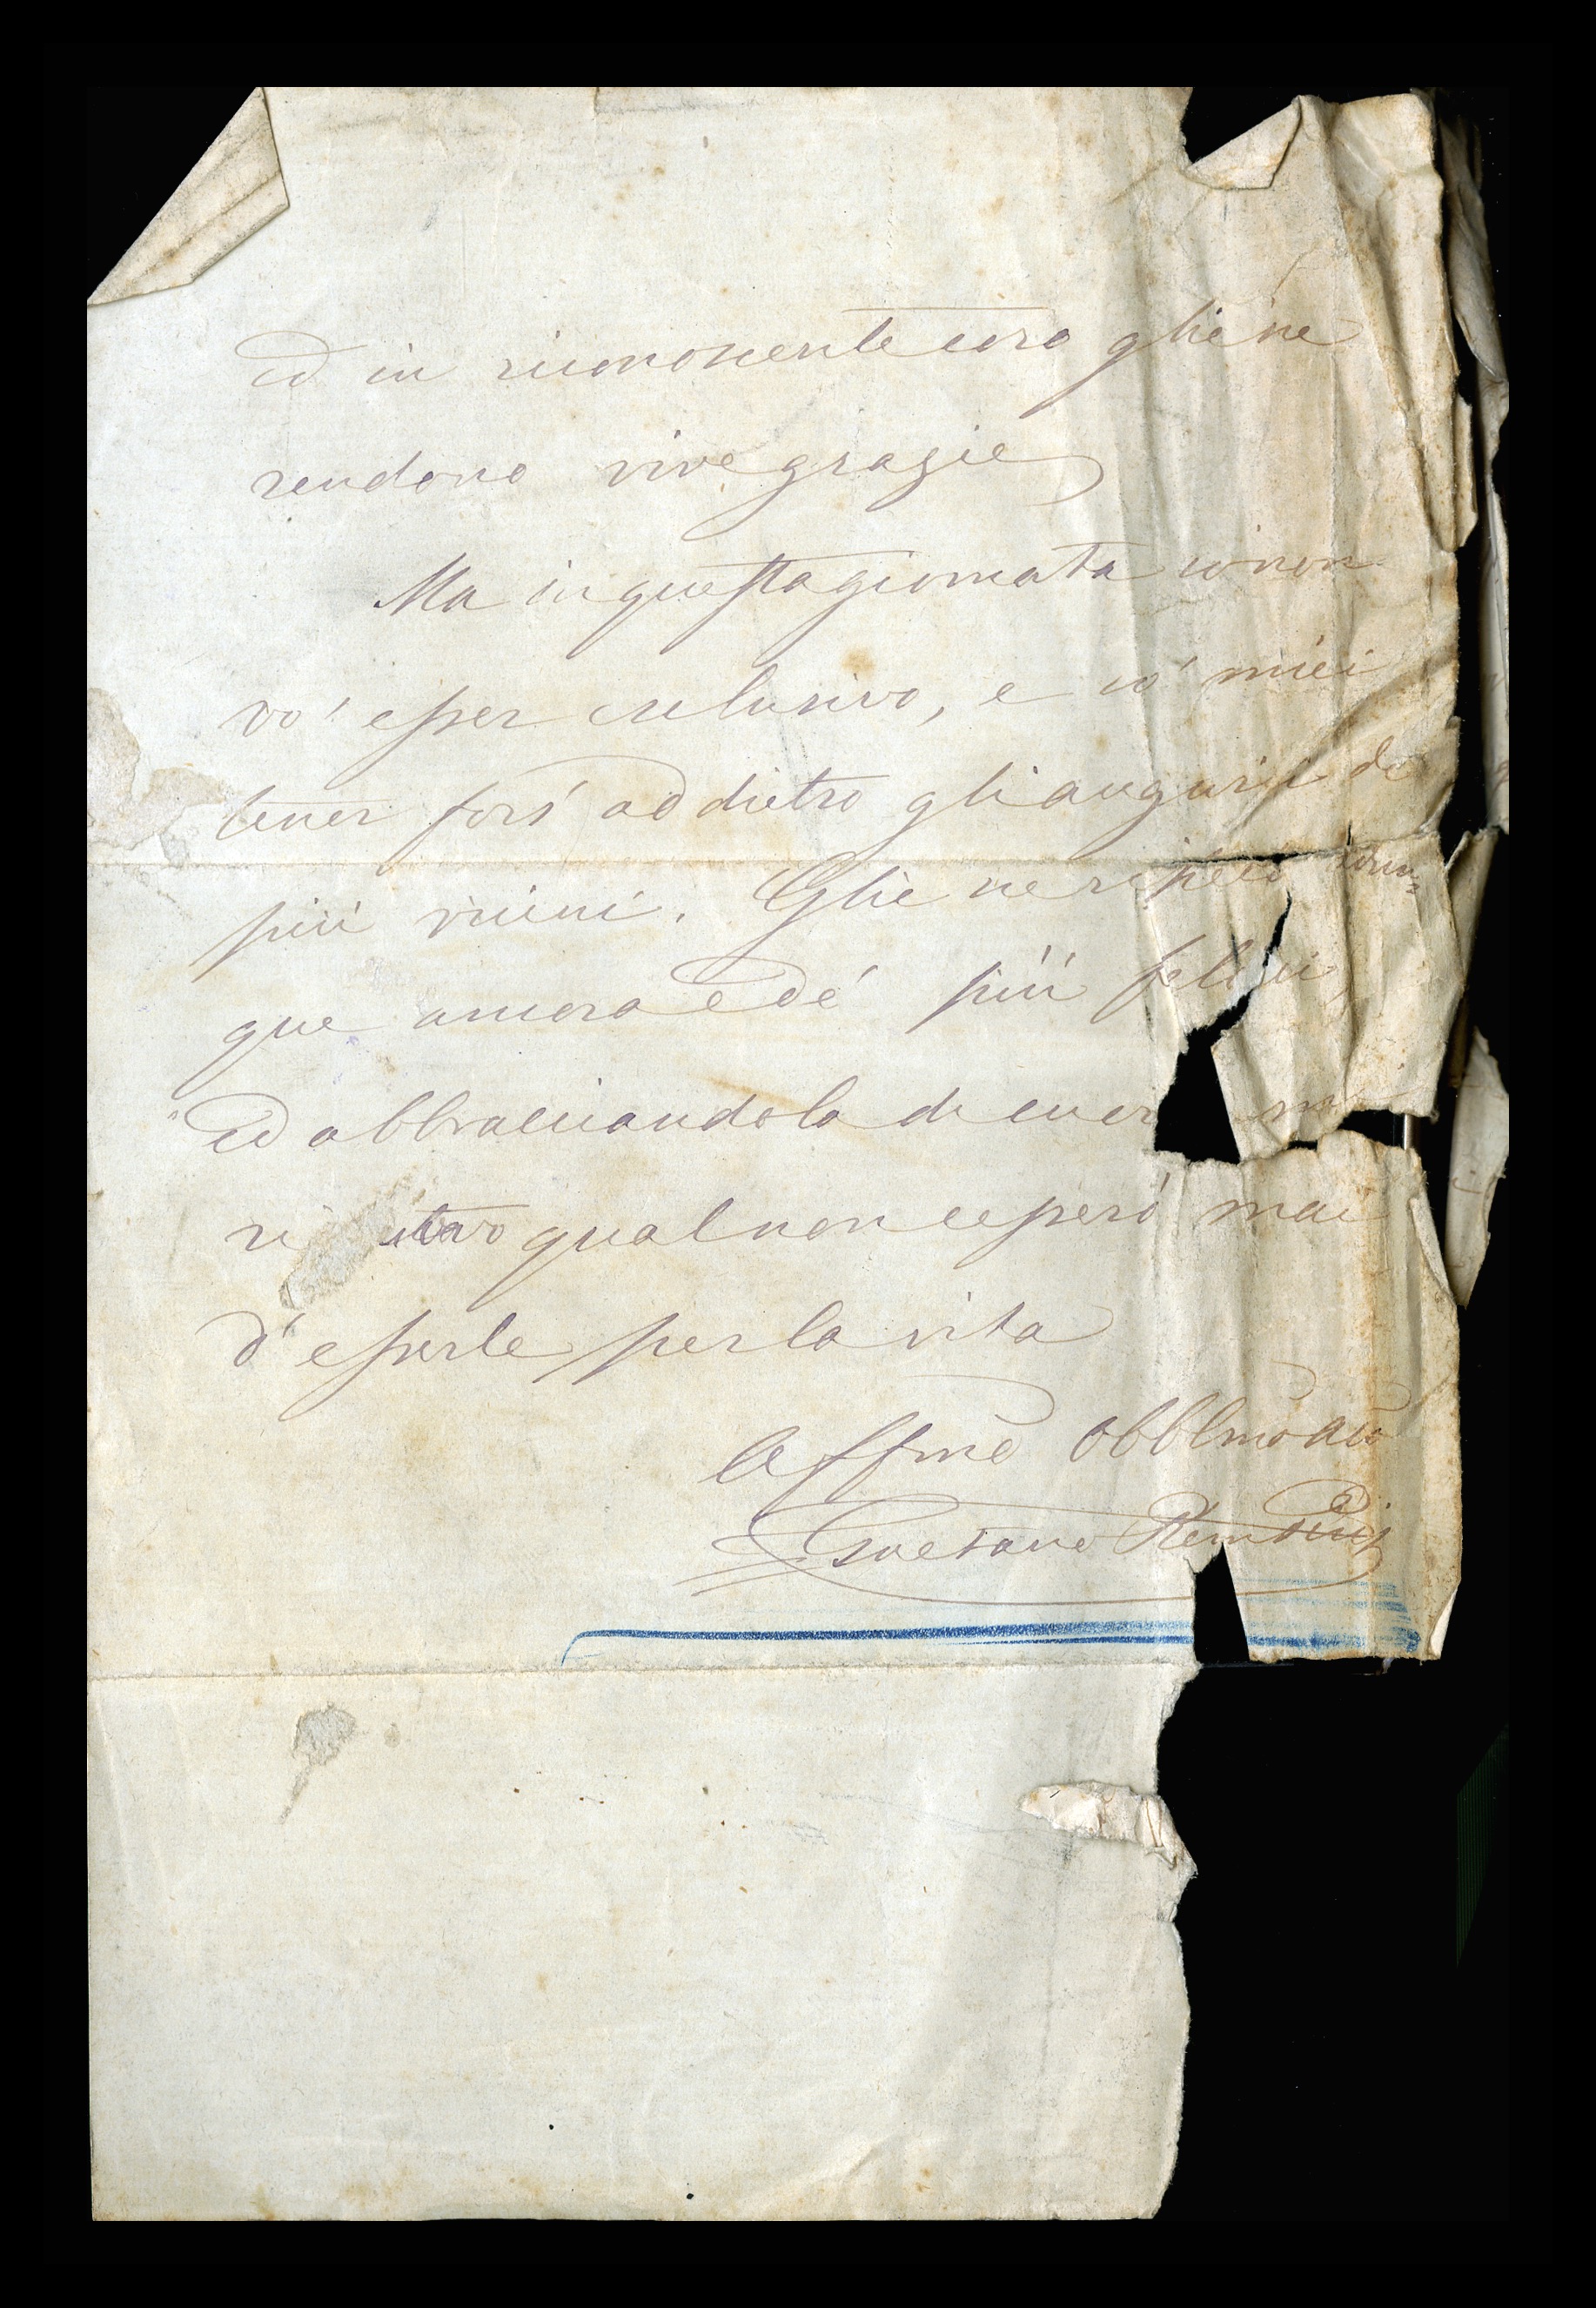 ed in riconoscente coro gliene
rendono vive grazie
Ma in questa giornata io non
vo' esser esclusivo, e co' miei
tener fors' addietro gli auguri de
più vicini. Glie ne ripeto dun=
que ancora ed de' più felici,
ed abbracciandola di cuor
qual non cesserò mai
d'esserle per la vita
Affmo Obblmo
Gaetano